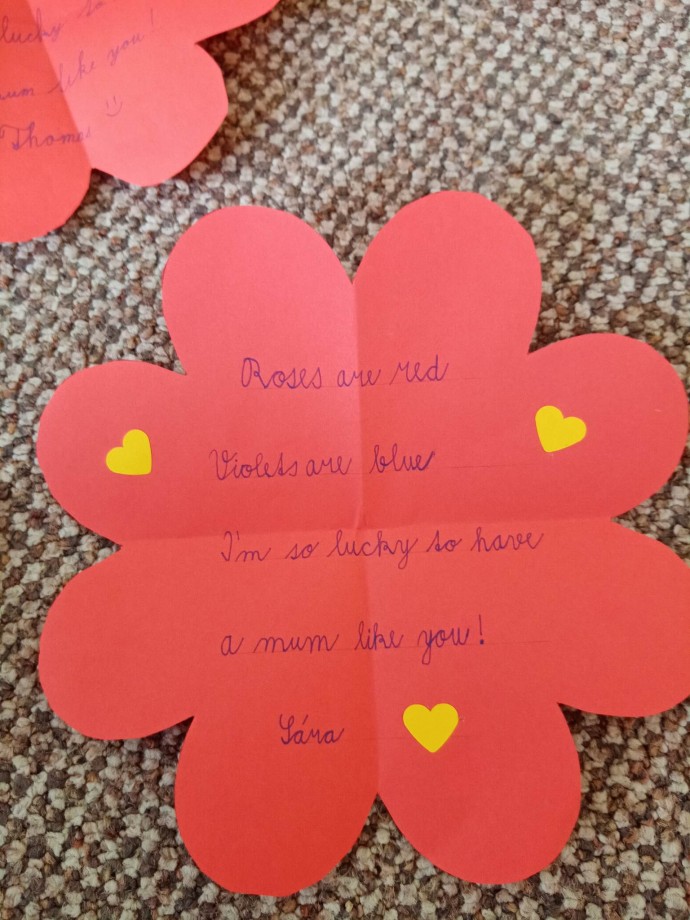 lucky so
mum like you!
Thomas
Roses are red
Violets are blue
I'm so lucky to have
a mum like you!
Sára